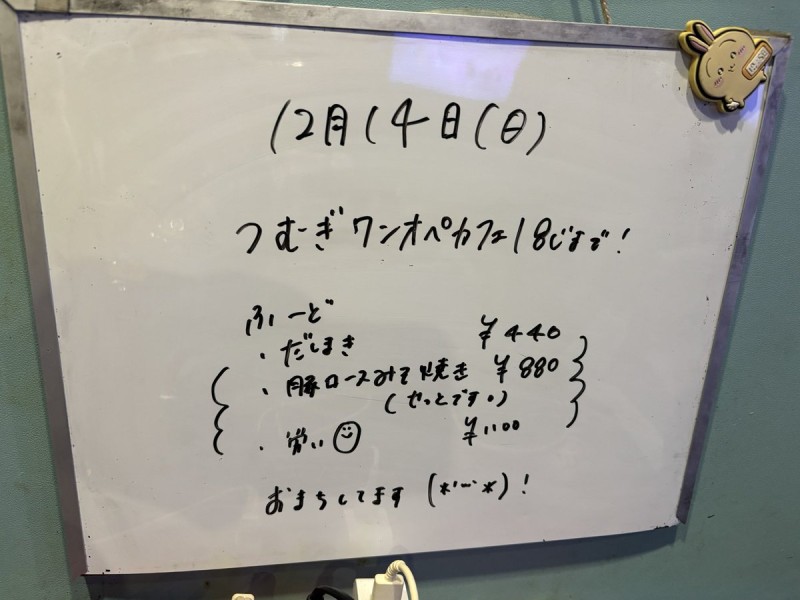 12月14日(日)
つむぎワンオペカフェ18じまで!
ふーど
・だしまき ¥440
・豚ロースみそ焼き ¥880
(セットです。)
・笑い ¥1100
おまちしてます (*'-'*)!